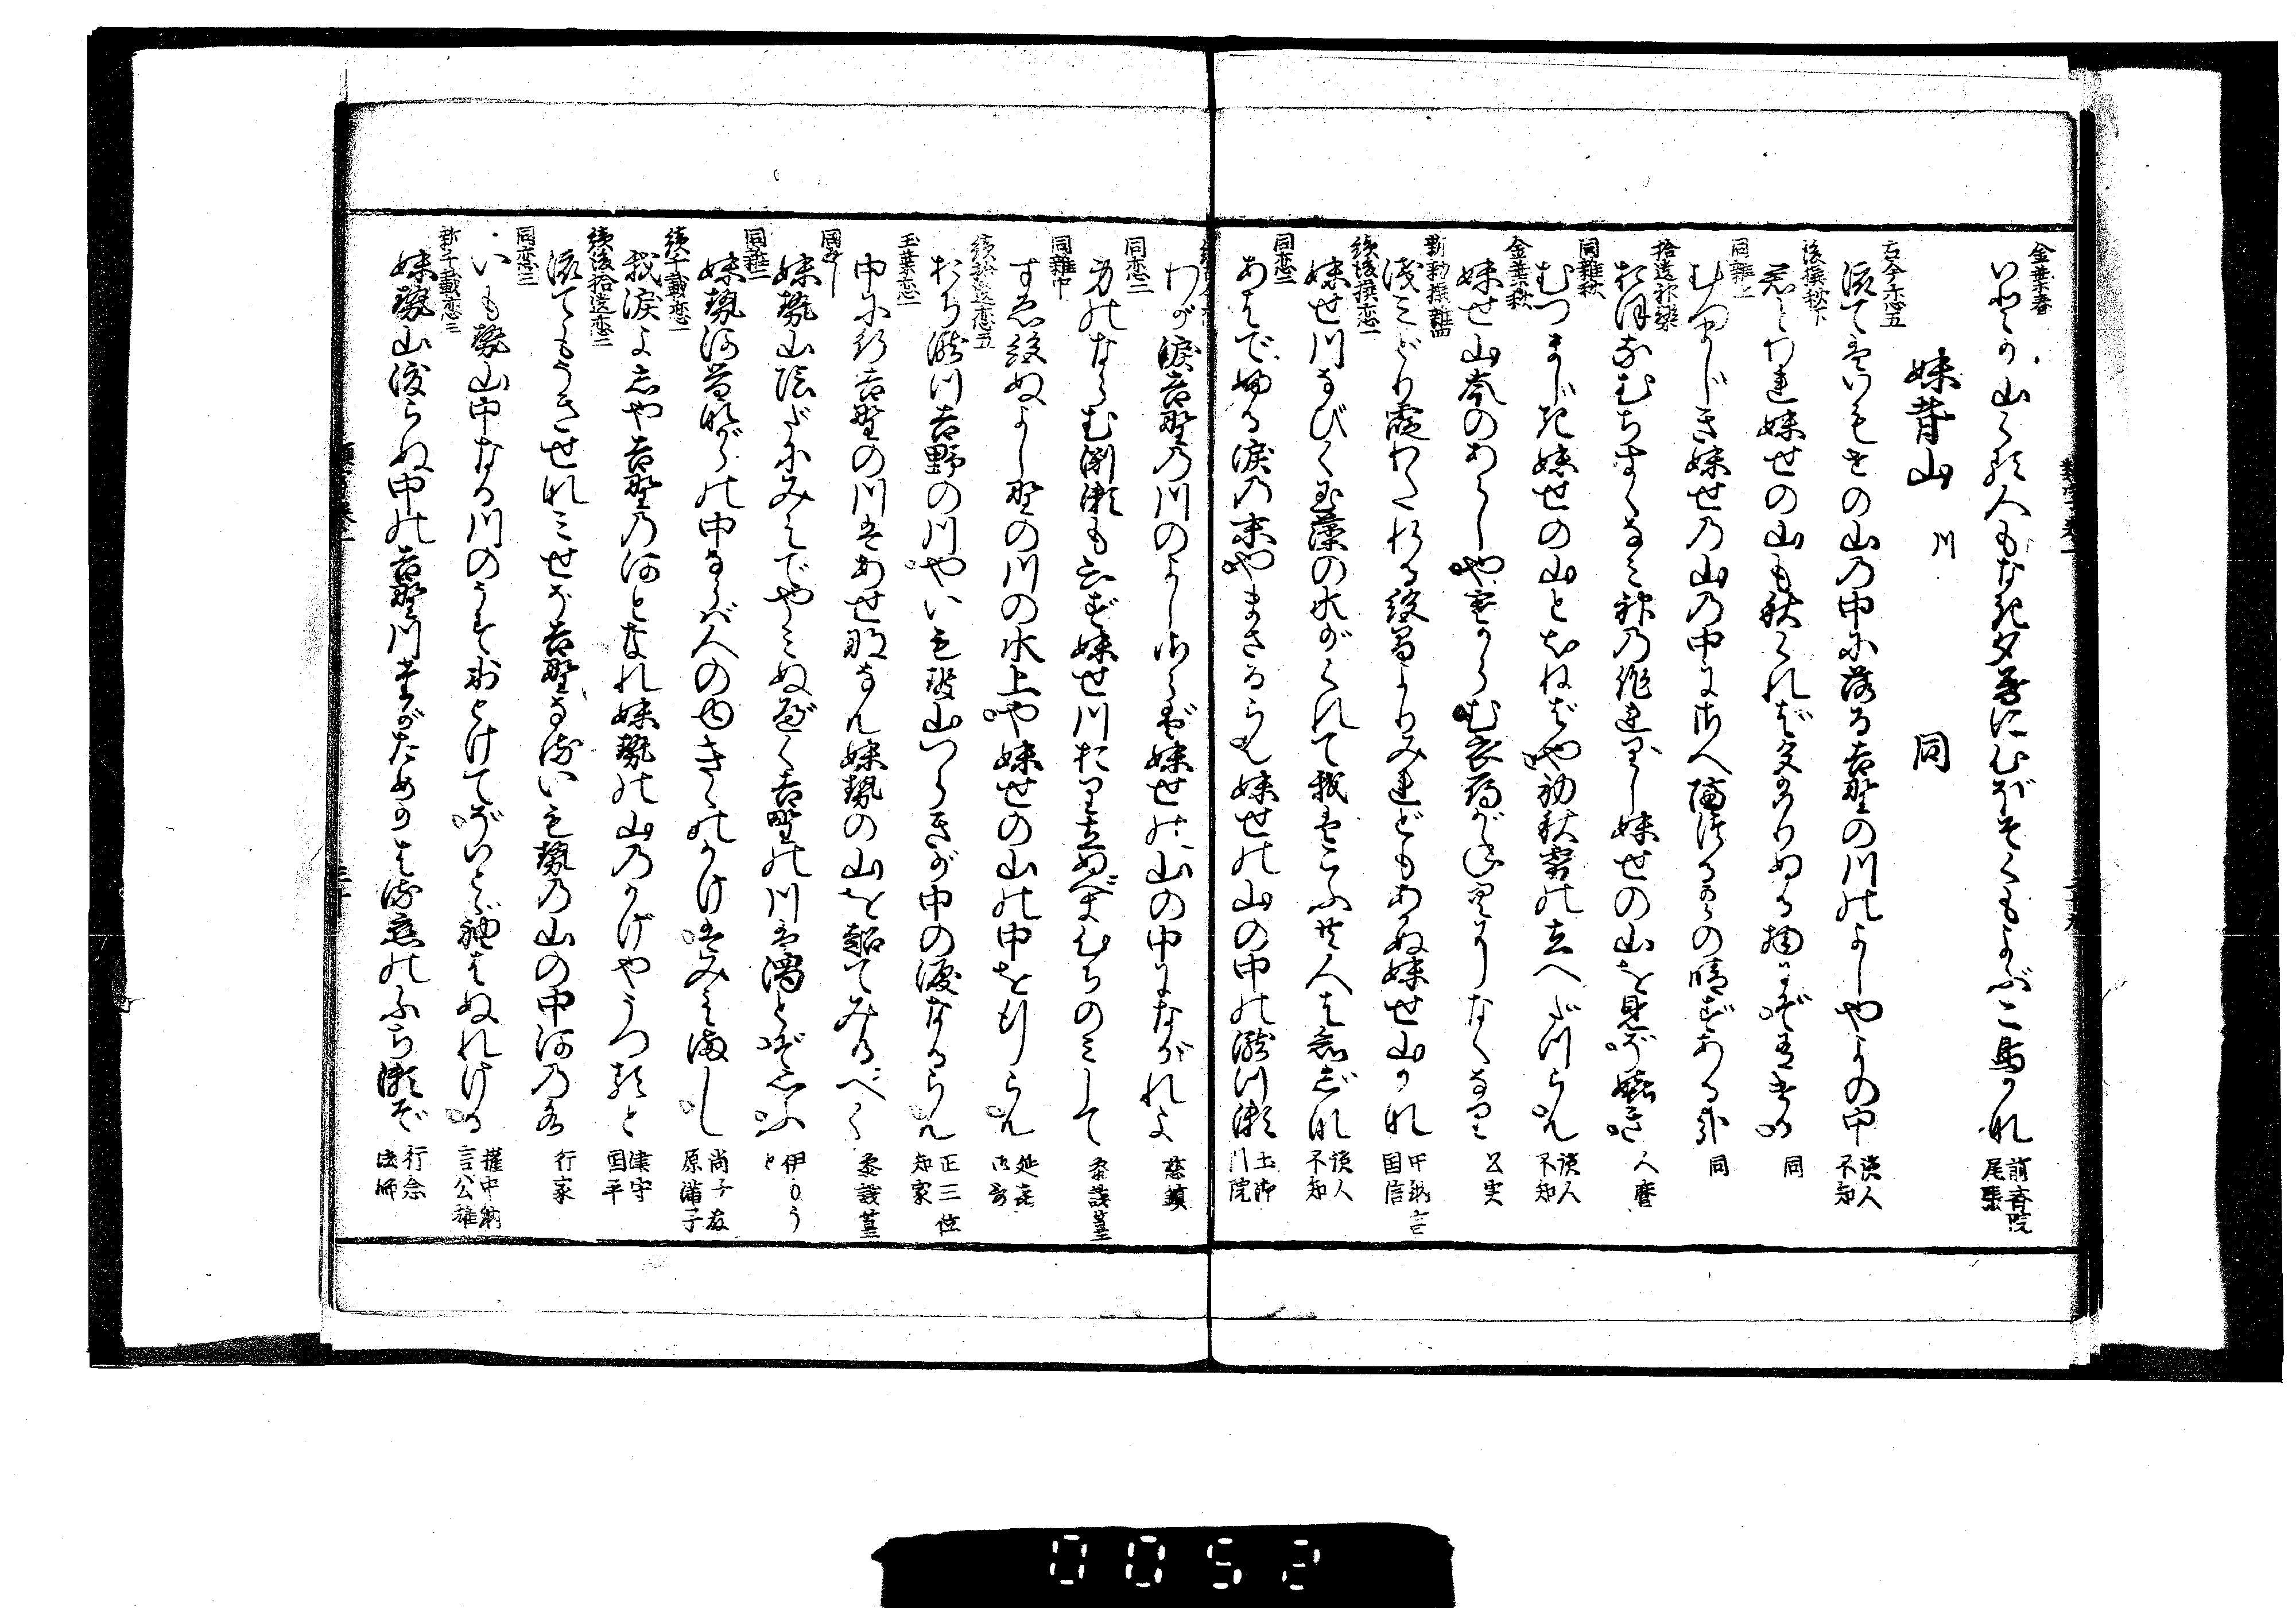 金葉春
いとか山くる人もなき夕暮に心ぼそくもよぶこ鳥かな 前斎院尾張
妹背山 川 同
古今恋五
流てはいもせの山の中に落る吉野の川のよしや世の中 読人不知
後撰秋下
君とわれ妹せの山も秋くれば色かはりぬる物にぞ有ける 同
同雑二
むつまじき妹せの山の中にさへ隔つる雲の晴ずもある哉 同
拾遺神楽
おほなむちすくなみ神の作れりし妹せの山を見るぞ嬉き 人麿
同雑秋
むつまじき妹せの山としらねばや初秋霧の立へだつらん 読人不知
金葉秋
妹せ山峯のあらしや寒からむ衣かりがね空になくなり 公実
新勅撰雑四
浅みどり霞わたれる絶まよりみれどもあかぬ妹せ山かな 中納言国信
続後撰恋一
妹せ川なびく玉藻の水がくれて我はこふ共人はしらじな 読人不知
同恋二
あはで帰る涙の末やまさるらん妹せの山の中の滝川瀬 土御川院
わが涙吉野の川のよしさらば妹せの山の中にながれよ 慈鎮
同恋二
身のならむ淵瀬もしらず妹せ川おり立ぬべきこゝちのみして 参議篁
同雑中
すゑ絶ぬよし野の川の水上や妹せの山の中を行らん 延喜御
続拾遺恋五
おち滝川吉野の川やいもせ山つらきが中の涙なるらん 正三位知家
玉葉恋一
中に行吉野の川はあせなゝん妹勢の山を越てみるべく 参議篁
同
妹勢山陰だにみえでやみぬべく吉野の川は濁とぞ思ふ 伊もうと
同雑二
妹勢河昔ながらの中ならば人のゆきゝのかけはみてまし 尚子藤原満子
続千載恋一
我涙よしや吉野の河となれ妹勢の山のかげやうつると 津守国平
続後拾遺恋三
流てもうきせなみせそ吉野なるいも勢の山の中河の水 行家
同恋三
いも勢山中なる川のうす氷とけてぞいとゞ袖はぬれける 権中納言公雄
新千載恋三
妹勢山渡らぬ中の吉野川たがためかはる恋のふち瀬ぞ 行念法師
0052